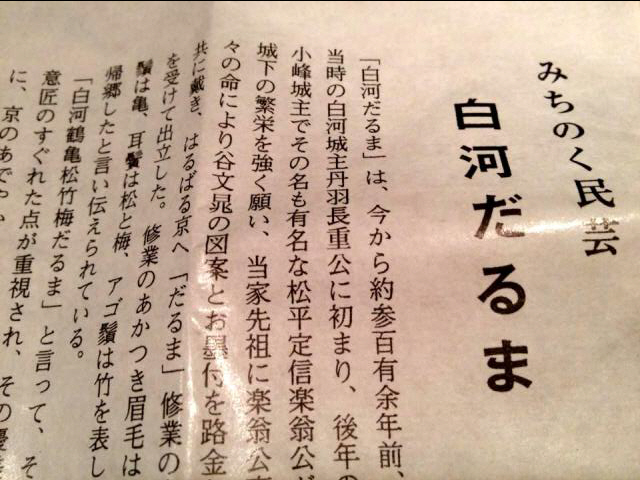 みちのく民芸
白河だるま
「白河だるま」は、今から約参百有余年前、
当時の白河城主丹羽長重公に初まり、後年の
小峰城主でその名も有名な松平定信楽翁公が
城下の繁栄を強く願い、当家先祖に楽翁公直
々の命により谷文晁の図案とお墨付を路金
共に戴き、はるばる京へ「だるま」修業の
を受けて出立した。修業のあかつき眉毛は
鬚は亀、耳鬢は松と梅、アゴ鬚は竹を表し
帰郷したと言い伝えられている。
「白河鶴亀松竹梅だるま」と言って、そ
意匠のすぐれた点が重視され、その優
に、京のあでや